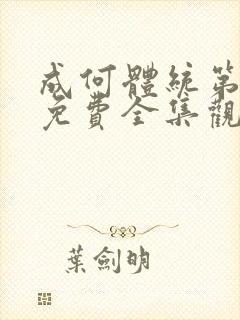 成何體統第
免費全集觀
葉劍明